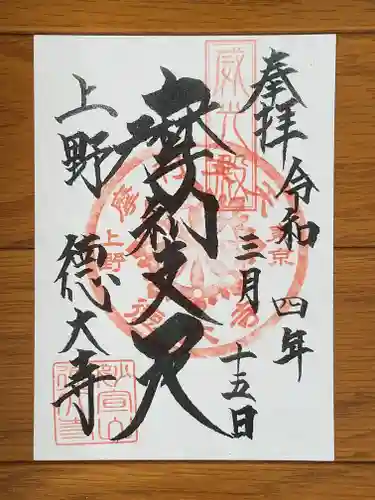 奉拝
令和四年
三月十五日
摩利支天
上野
徳大寺
威光殿
東京
上野
摩